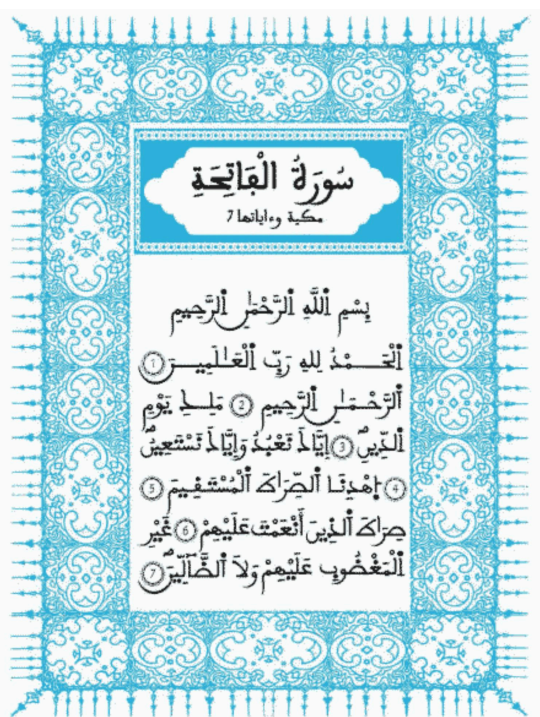 سُورَةُ الْفَاتِحَةِ
مكية وءاياتها 7
بِسْمِ اِ۬للَّهِ اِ۬لرَّحْمَٰنِ اِ۬لرَّحِيمِ
اَ۬لْحَمْدُ لِلهِ رَبِّ اِ۬لْعَٰلَمِينَ 1
اَ۬لرَّحْمَٰنِ اِ۬لرَّحِيمِ 2 مَلِكِ يَوْمِ
اِ۬لدِّينِ 3 إِيَّاكَ نَعْبُدُ وَإِيَّاكَ نَسْتَعِينُ
4 اِهْدِنَا اَ۬لصِّرَٰطَ اَ۬لْمُسْتَقِيمَ 5
صِرَٰطَ اَ۬لذِينَ أَنْعَمْتَ عَلَيْهِمْ 6 غَيْرِ
اِ۬لْمَغْضُوبِ عَلَيْهِمْ وَلَا اَ۬لضَّآلِّينَ 7